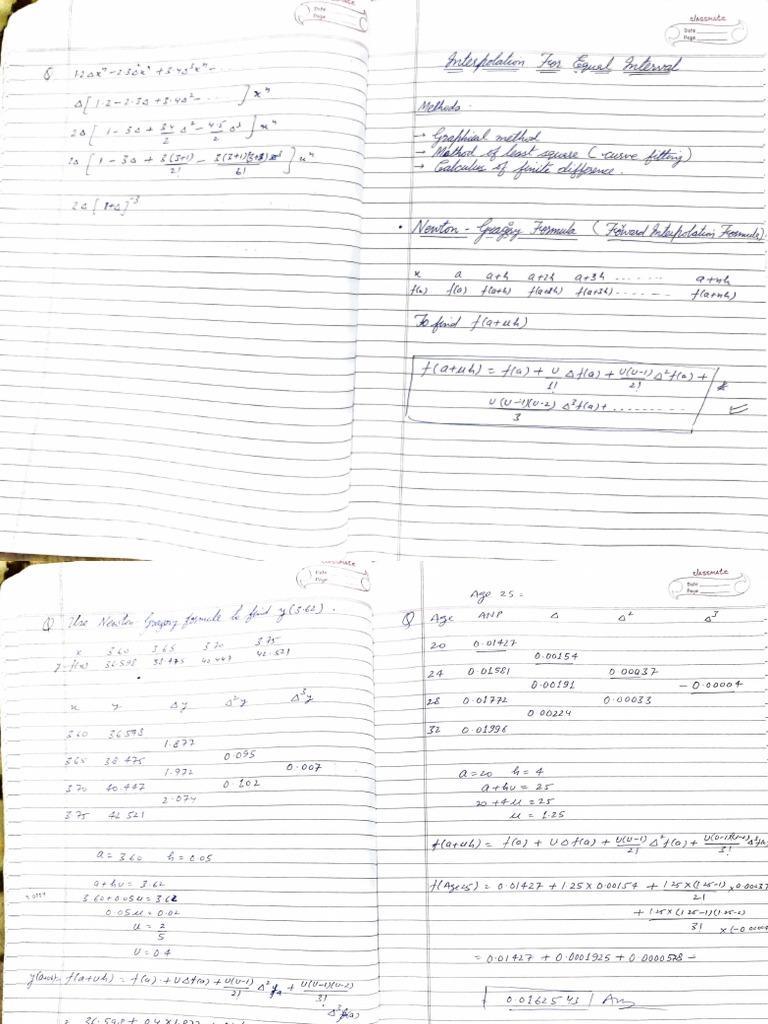 classmate
Date
Page
Q 1.2Δxⁿ - 2.3Δ²xⁿ + 3.4Δ³xⁿ - ...
Δ[1.2 - 2.3Δ + 3.4Δ² - ...... ] xⁿ
2Δ[1 - 3Δ + 3.4/2 Δ² - 4.5/2 Δ³ ] xⁿ
2Δ[1 - 3Δ + 3(3+1)/2! - 3(3+1)(3+2)/6! ] xⁿ
2Δ[1+Δ]⁻³
classmate
Date
Page
Interpolation For Equal Interval
Methods.
→ Graphical method
→ Method of least square (curve fitting)
→ Calculus of finite difference.
• Newton - Gregory Formula (Forward Interpolation Formula).
x a a+h a+2h a+3h ....... a+nh
f(x) f(a) f(a+h) f(a+2h) f(a+3h) ....... f(a+nh)
To find f(a+uh)
f(a+uh) = f(a) + U/1! Δf(a) + U(U-1)/2! Δ²f(a) +
U(U-1)(U-2)/3 Δ³f(a) + ..........
classmate
Date
Page
Q Use Newton Gregory formula to find y(3.62).
x 3.60 3.65 3.70 3.75
y=f(x) 36.598 38.475 40.447 42.521
x y Δy Δ²y Δ³y
3.60 36.598
1.877
3.65 38.475 0.095
1.972 0.007
3.70 40.447 0.102
2.074
3.75 42.521
a = 3.60 h = 0.05
a+hu = 3.62
3.60+0.05u = 3.62
0.05u = 0.02
u = 2/5
U = 0.4
f(a+uh) = f(a) + UΔf(a) + U(U-1)/2! Δ²fa + U(U-1)(U-2)/3! Δ³f(a)
= 36.598 + 0.4×1.877 +
classmate
Date
Page
Age 25 =
Q Age ANP Δ Δ² Δ³
20 0.01427
0.00154
24 0.01581 0.00037
0.00191 -0.00004
28 0.01772 0.00033
0.00224
32 0.01996
a=20 h=4
a+hu = 25
20+4u = 25
u = 1.25
f(a+uh) = f(a) + UΔf(a) + U(U-1)/2! Δ²f(a) + U(U-1)(U-2)/3! Δ³f(a)
f(Age 25) = 0.01427 + 1.25×0.00154 + 1.25×(1.25-1)/2! ×0.00037
+ 1.25×(1.25-1)(1.25-2)/3! ×(-0.00004
= 0.01427 + 0.0001925 + 0.0000578 -
0.0162543 Ans